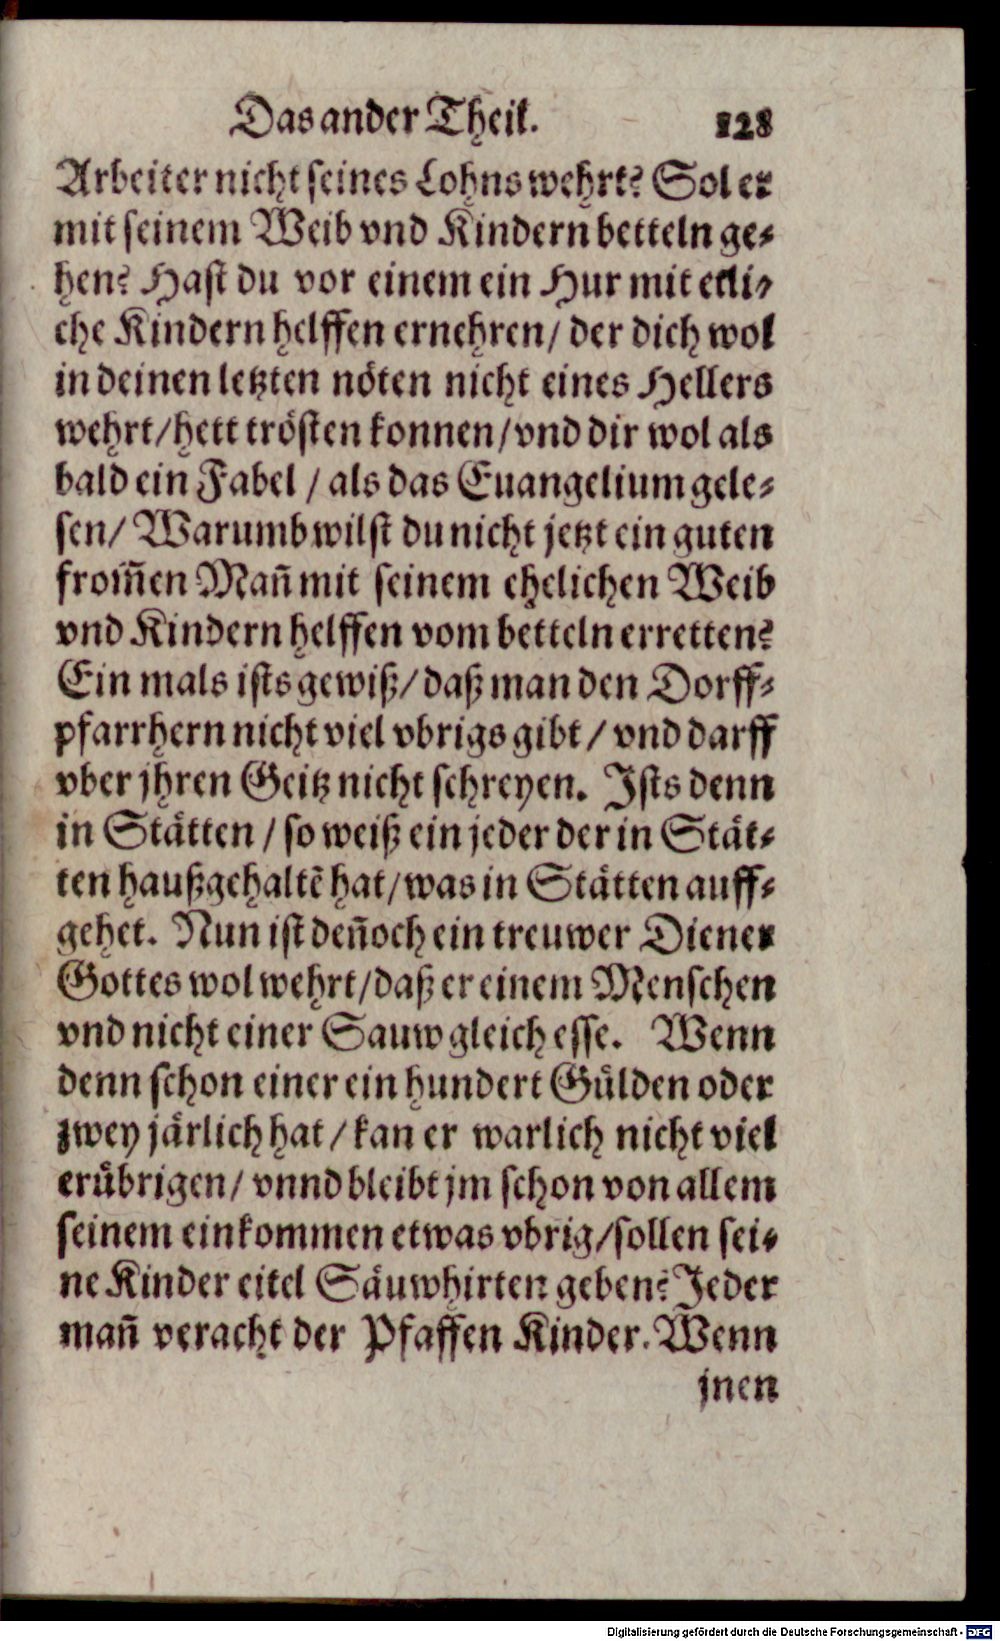 Das ander Theil. 128
Arbeiter nicht seines Lohns wehrt? Sol er
mit seinem Weib vnd Kindern betteln ge-
hen? Hast du vor einem ein Hur mit etli-
che Kindern helffen ernehren/ der dich wol
in deinen letzten nöten nicht eines Hellers
wehrt/hett trösten konnen/vnd dir wol als
bald ein Fabel / als das Euangelium gele-
sen/ Warumb wilst du nicht jetzt ein guten
from̃en Mañ mit seinem ehelichen Weib
vnd Kindern helffen vom betteln erretten?
Ein mals ists gewiß/daß man den Dorff-
pfarrhern nicht viel vbrigs gibt / vnd darff
vber jhren Geitz nicht schreyen. Ists denn
in Stätten / so weiß ein jeder der in Stät-
ten haußgehaltẽ hat/was in Stätten auff-
gehet. Nun ist deñoch ein treuwer Diener
Gottes wol wehrt/daß er einem Menschen
vnd nicht einer Sauw gleich esse. Wenn
denn schon einer ein hundert Gülden oder
zwey järlich hat/kan er warlich nicht viel
erübrigen/ vnnd bleibt jm schon von allem
seinem einkommen etwas vbrig/sollen sei-
ne Kinder eitel Säuwhirten geben? Jeder
mañ veracht der Pfaffen Kinder. Wenn
jnen
Digitalisierung gefördert durch die Deutsche Forschungsgemeinschaft - DFG